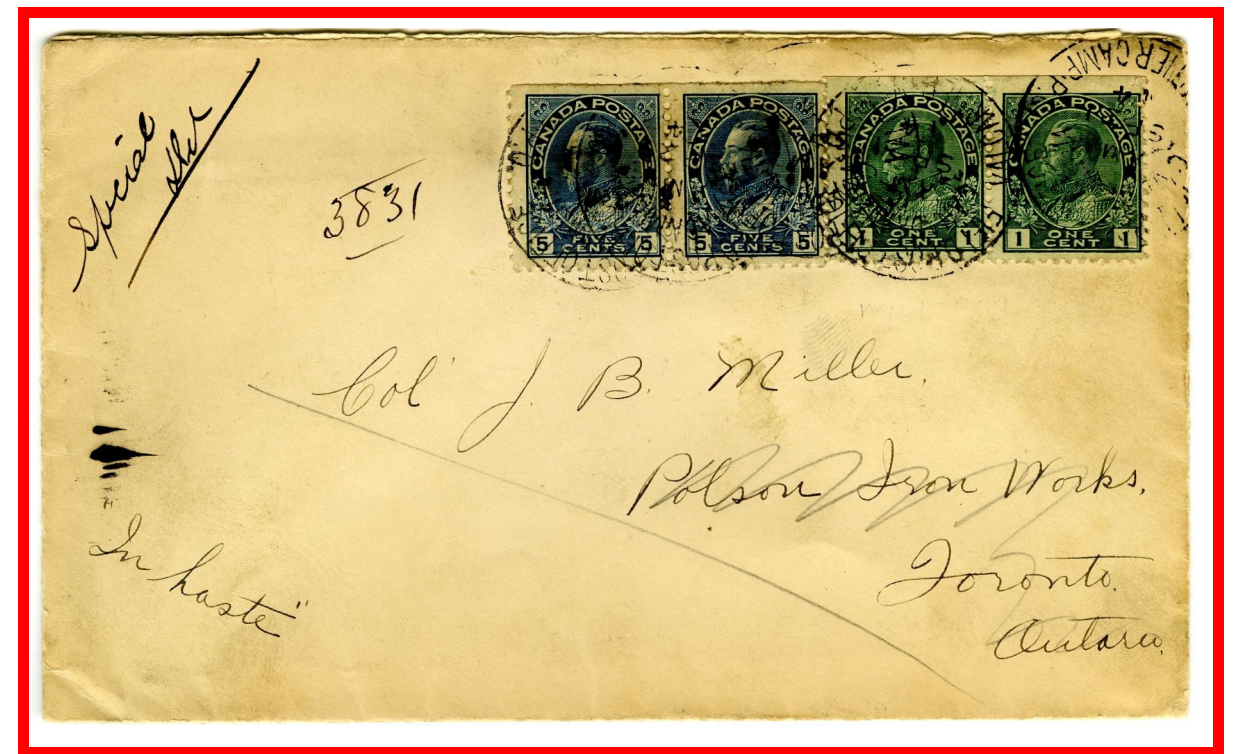 Special
Del
3831
CANADA POSTAGE
5 FIVE CENTS 5
CANADA POSTAGE
5 FIVE CENTS 5
CANADA POSTAGE
1 ONE CENT 1
CANADA POSTAGE
1 ONE CENT 1
CAMP
Col J. B. Miller.
Polson Iron Works.
Toronto.
Ontario.
In haste"